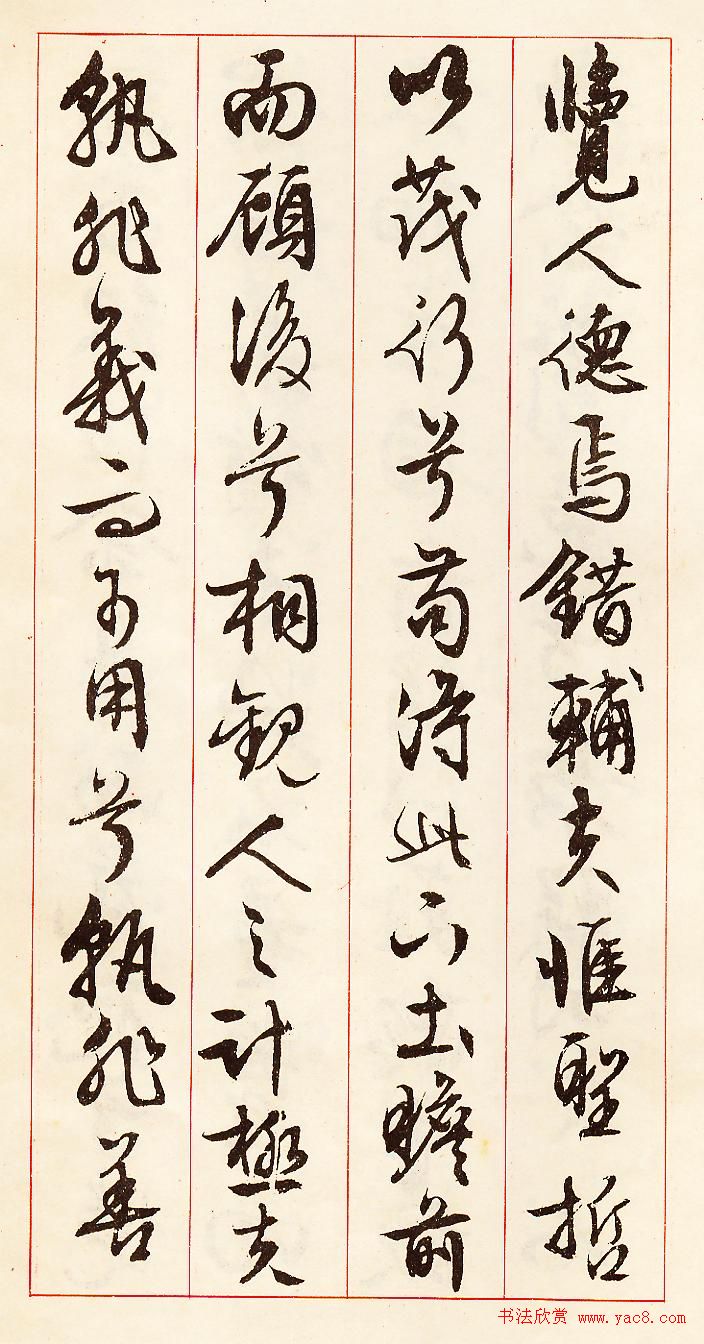 覽人德焉錯輔夫惟聖哲
以茂行兮苟得此下土瞻前
而顧後兮相觀人之計極夫
孰非義而可用兮孰非善
书法欣赏 www.yac8.com